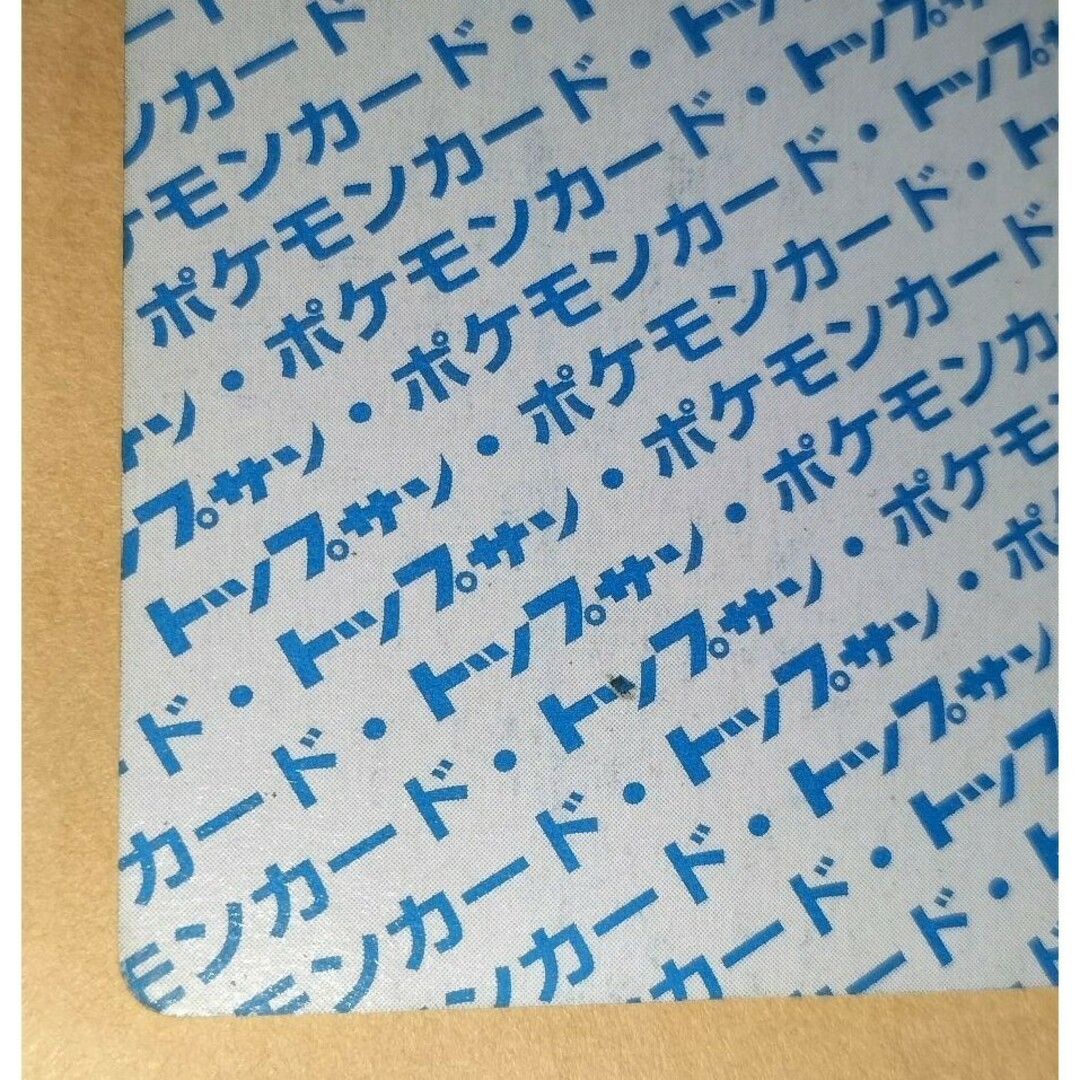 ンカード
ケモンカード・
ポケモンカード・ト
ン・ポケモンカード・トップ
ップサン・ポケモンカード・トップ
トップサン・ポケモンカード・ト
ド・トップサン・ポケモンカード
カード・トップサン・ポケモンカ
モンカード・トップサン・ポケモ
モンカード・トップサン・ポ
ンカード・トップサン
カード・トップ
ード・ト